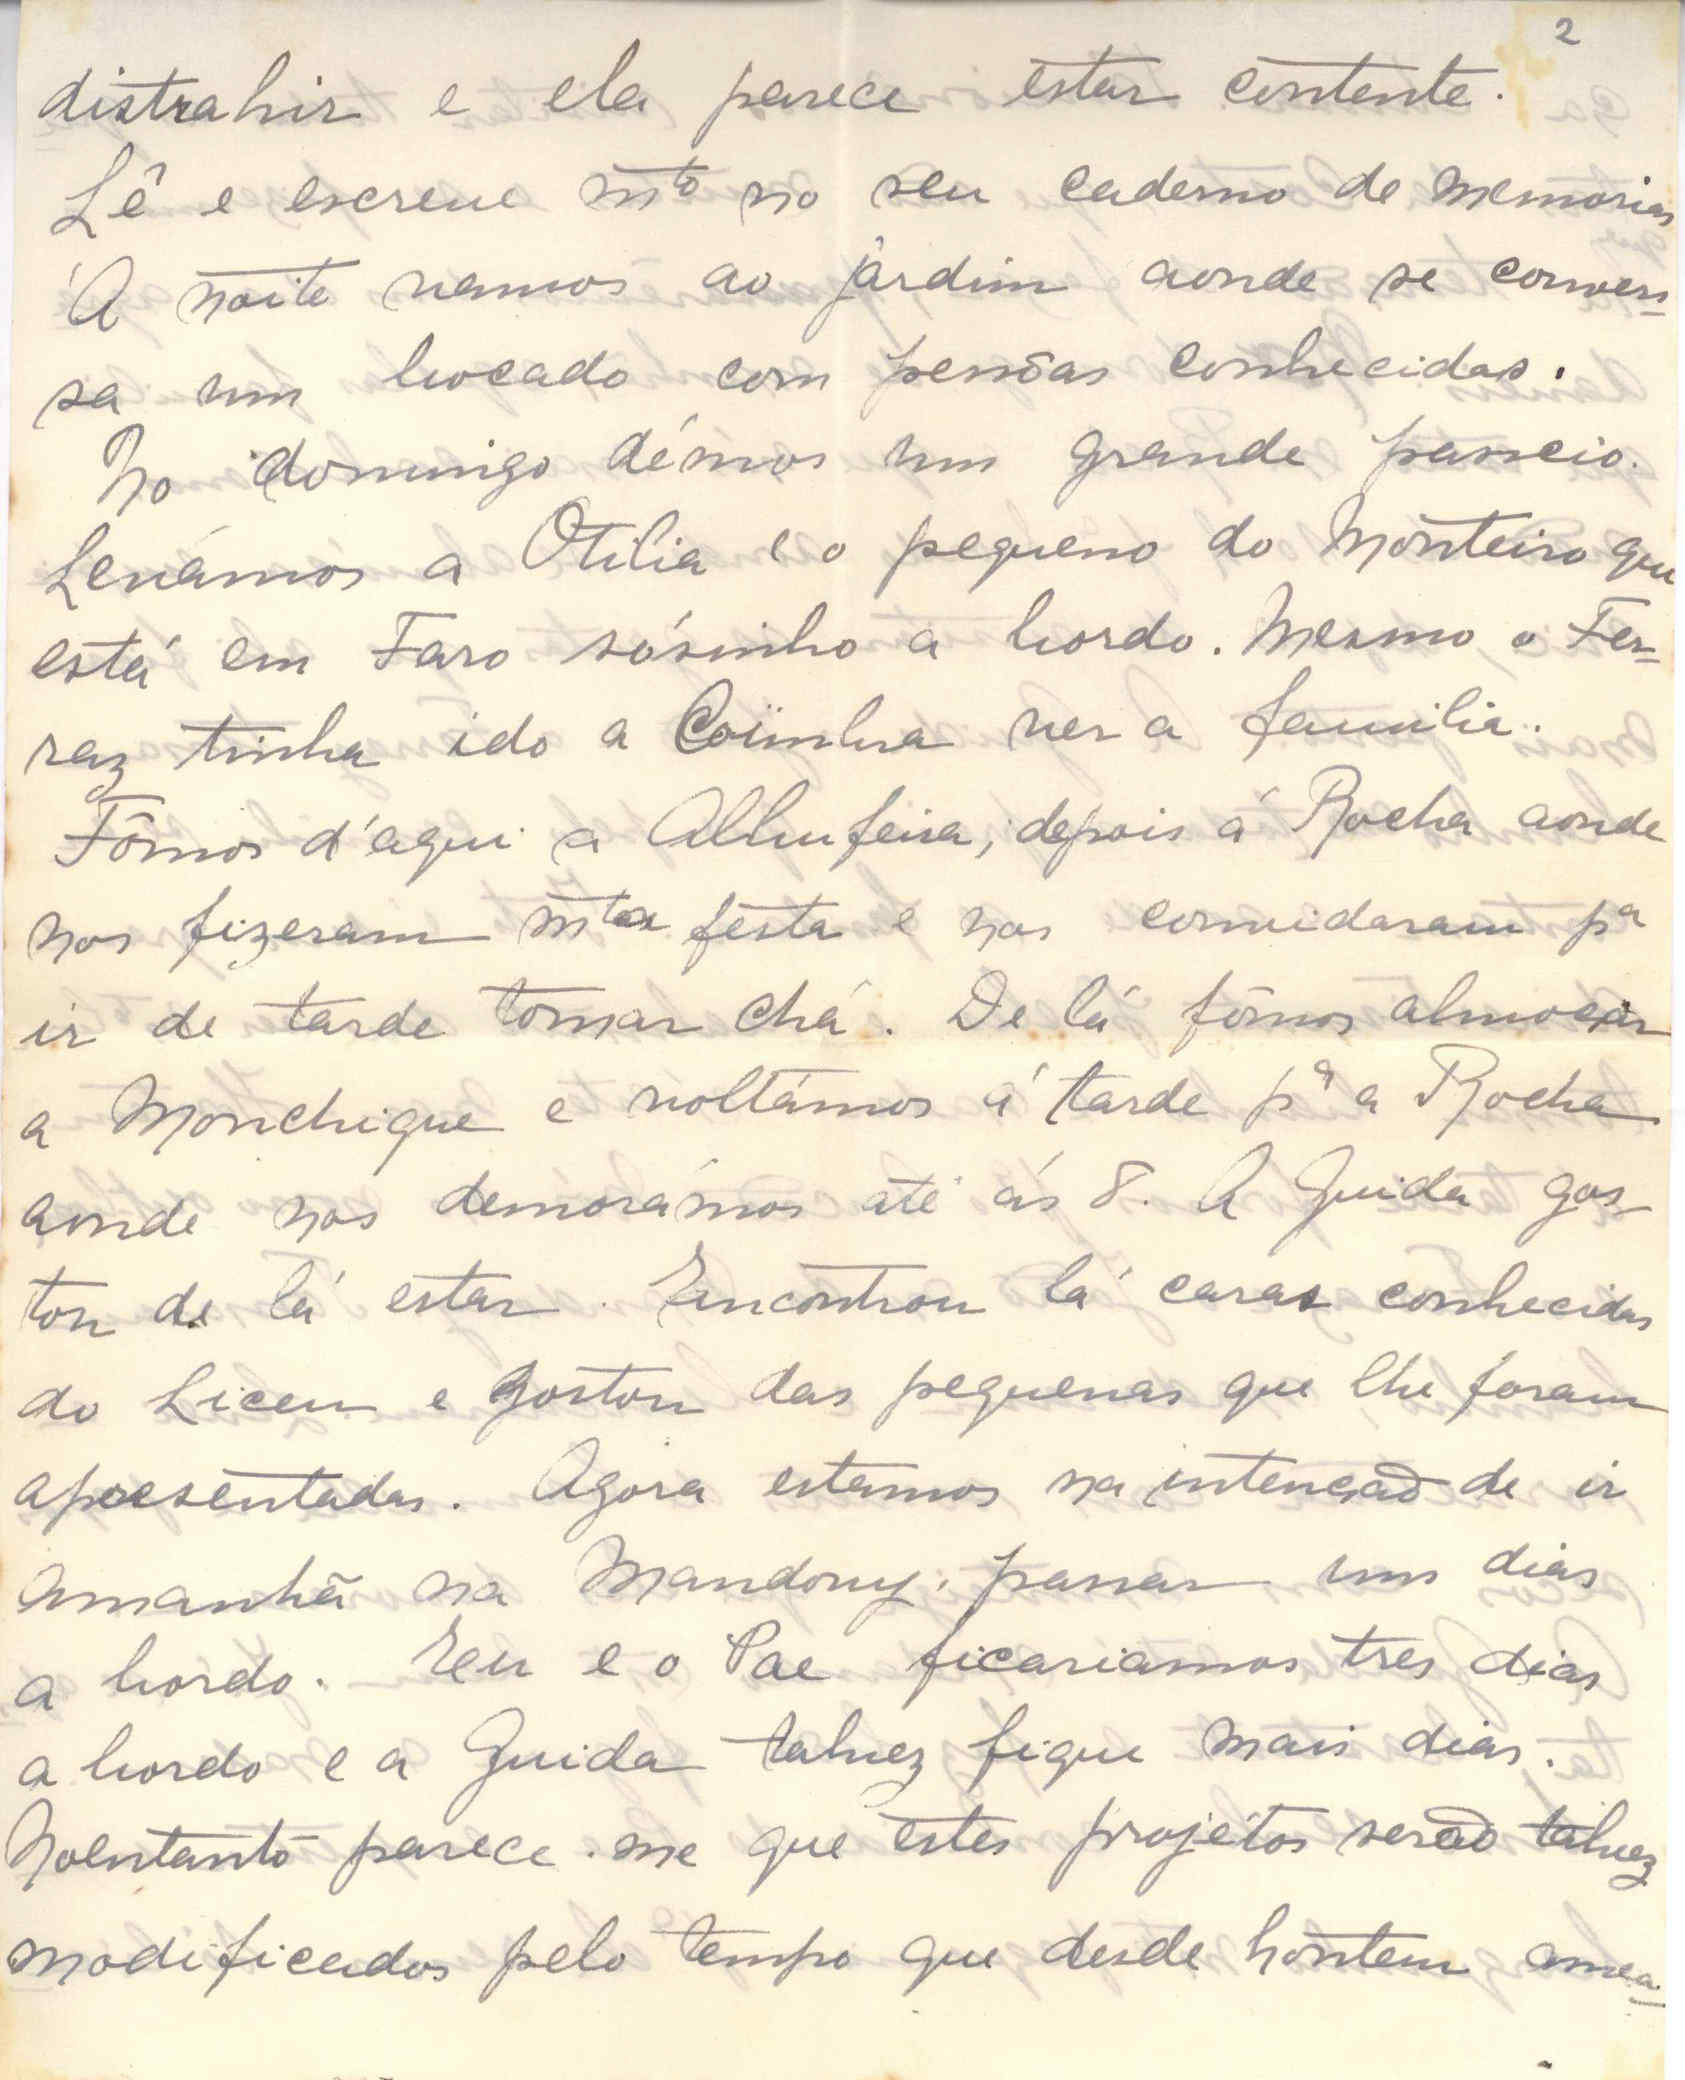 2
distrahir e ela parece estar contente.
Lê e escreve mto no seu caderno de memorias
Á noite vamos ao jardim aonde se conver-
sa um bocado com pessôas conhecidas.
No domingo démos um grande passeio.
Levámos a Otilia e o pequeno do Monteiro que
está em Faro sósinho a bordo. Mesmo o Fer-
raz tinha ido a Coïmbra ver a familia.
Fômos d'aqui a Albufeira, depois á Rocha aonde
nos fizeram mtas festa e nos convidaram pa
ir de tarde tomar chá. De lá fômos almoçar
a Monchique e voltámos á tarde pa a Rocha
aonde nos demorámos até ás 8. A Guida gos-
tou de lá estar. Encontrou lá caras conhecidas
do Liceu e gostou das pequenas que lhe foram
apresentadas. Agora estamos na intenção de ir
amanhã na Mandovy, passar uns dias
a bordo. Eeu e o Pae ficariamos tres dias
a bordo e a Guida talvez fique mais dias.
Noentanto parece-me que estes projétos serão talvez
modificados pelo tempo que desde hontem amea-